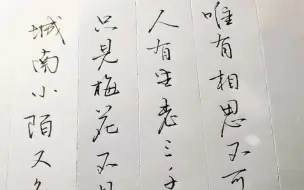 城南小陌又
只見梅花不
人有生老三千
唯有相思不可